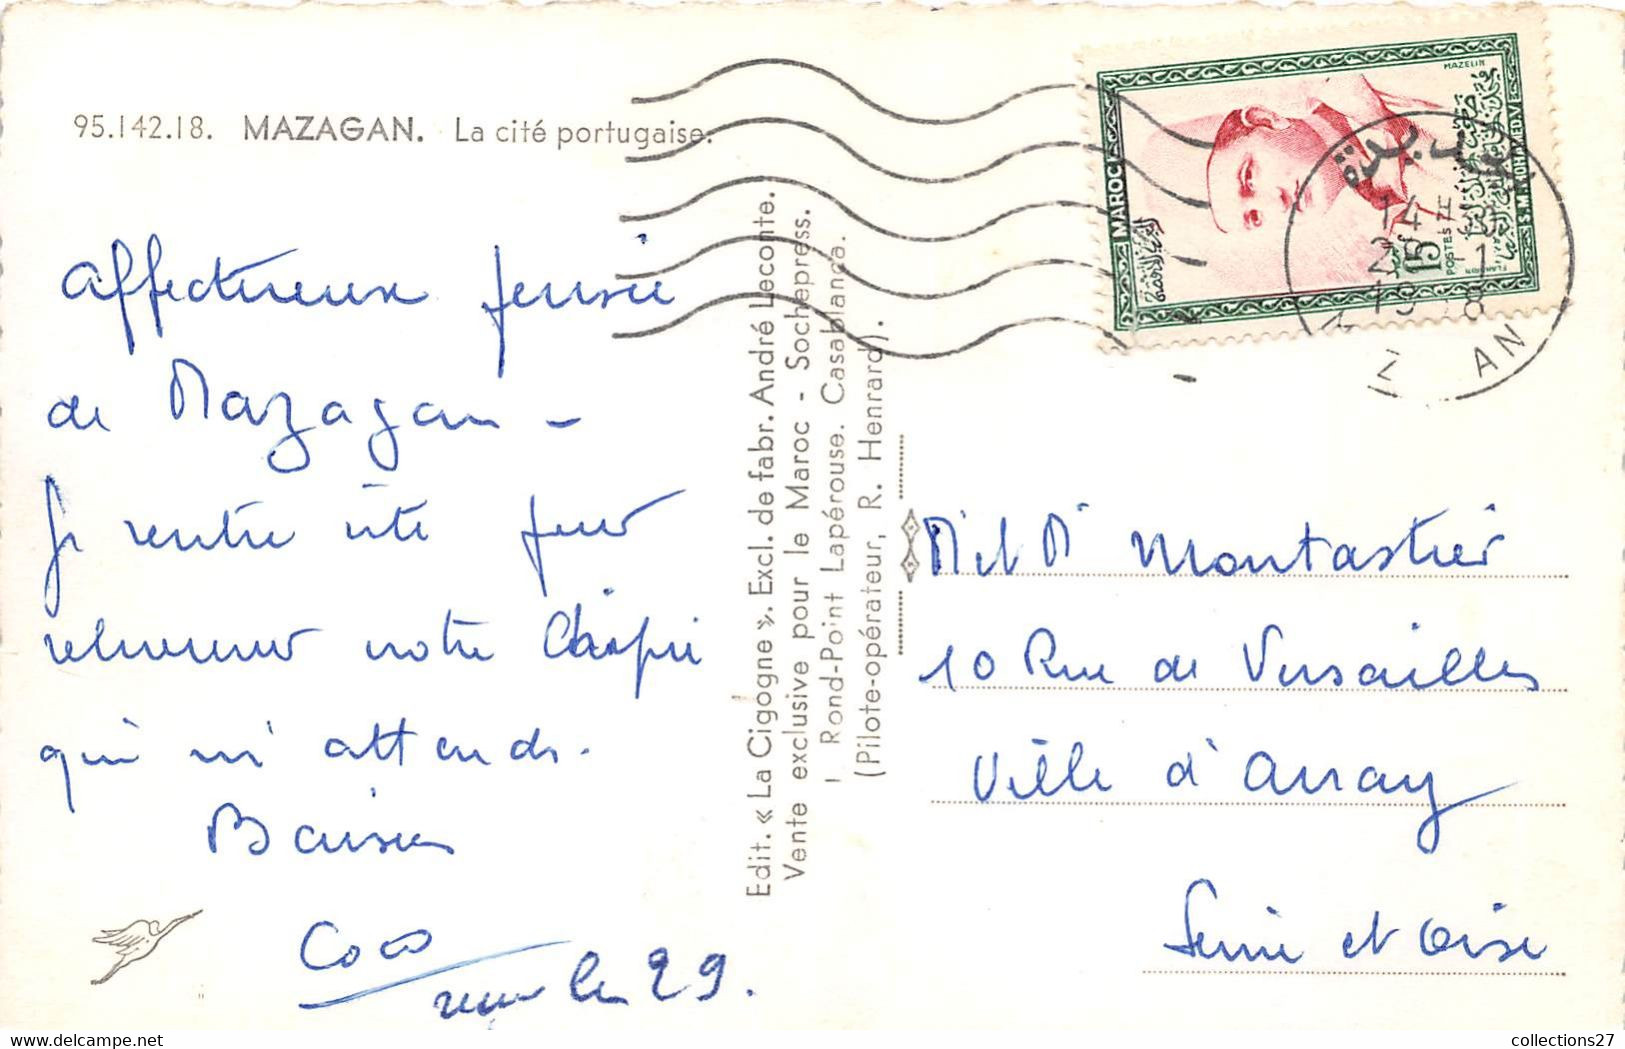 95.142.18. MAZAGAN. La cité portugaise.
Affectueux pensée
de Mazagan -
Je rentre vite pour
retrouver notre
qui m'attends.
Baisers
Coco
le 29.
Edit. « La Cigogne ». Excl. de fabr. André Leconte.
Vente exclusive pour le Maroc - Sochepress.
1 Rond-Point Lapérouse. Casablanca.
(Pilote-opérateur, R. Henrard).
MAROC
15F
POSTES
S.M. MOHAMED V
MAZELIN
14H
AN
M et Me Montastier
10 Rue de Versailles
Ville d'Avray
Seine et Oise
collections27